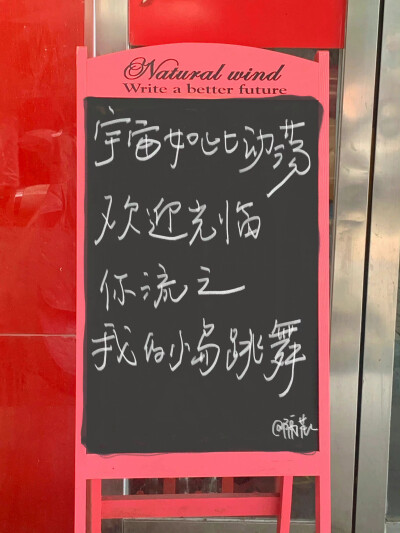 Natural wind
Write a better future
宇宙如此动荡
欢迎光临
你流之
我的小岛跳舞